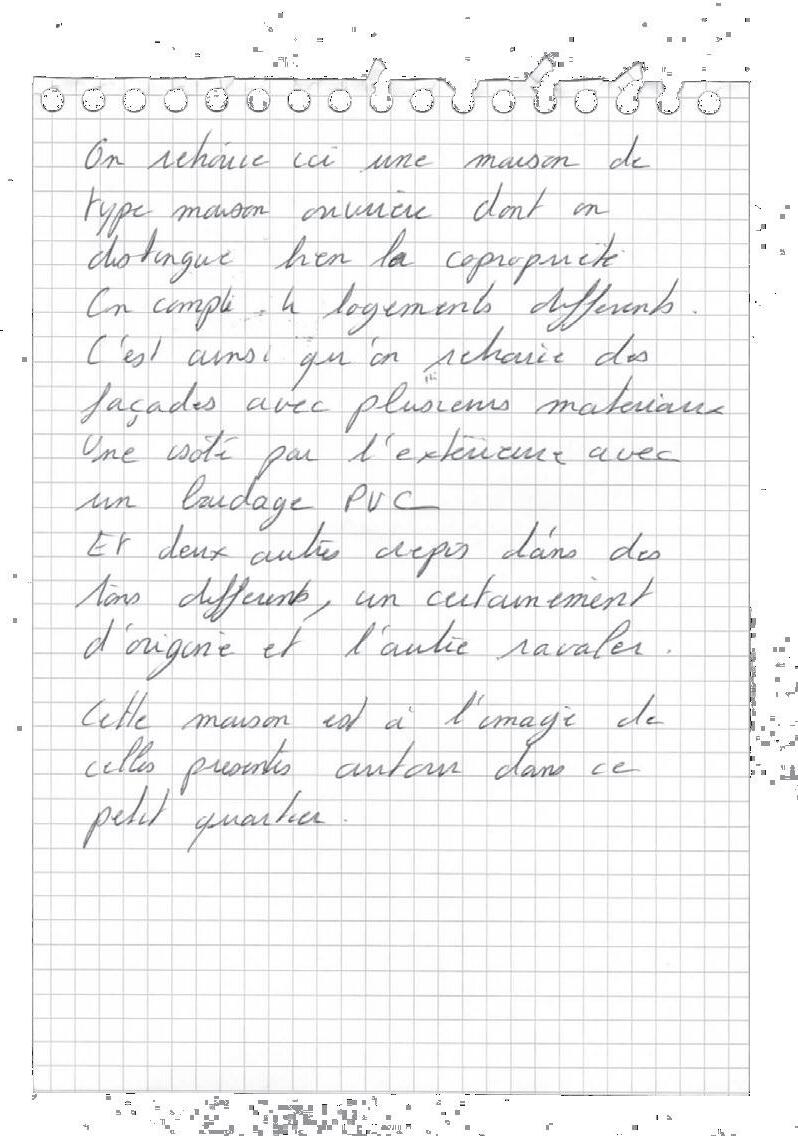 On retrouve ici une maison de
type maison ouvrière dont on
distingue bien la copropriété
On compte 4 logements différents.
C'est ainsi qu'on retrouve des
façades avec plusieurs materiaux
Une isolé par l'extérieure avec
un bardage PVC
Et deux autres crepis dans des
tons differents, un certainement
d'origine et l'autre ravaler.
Cette maison est à l'image de
celles presentes autour dans ce
petit quartier.